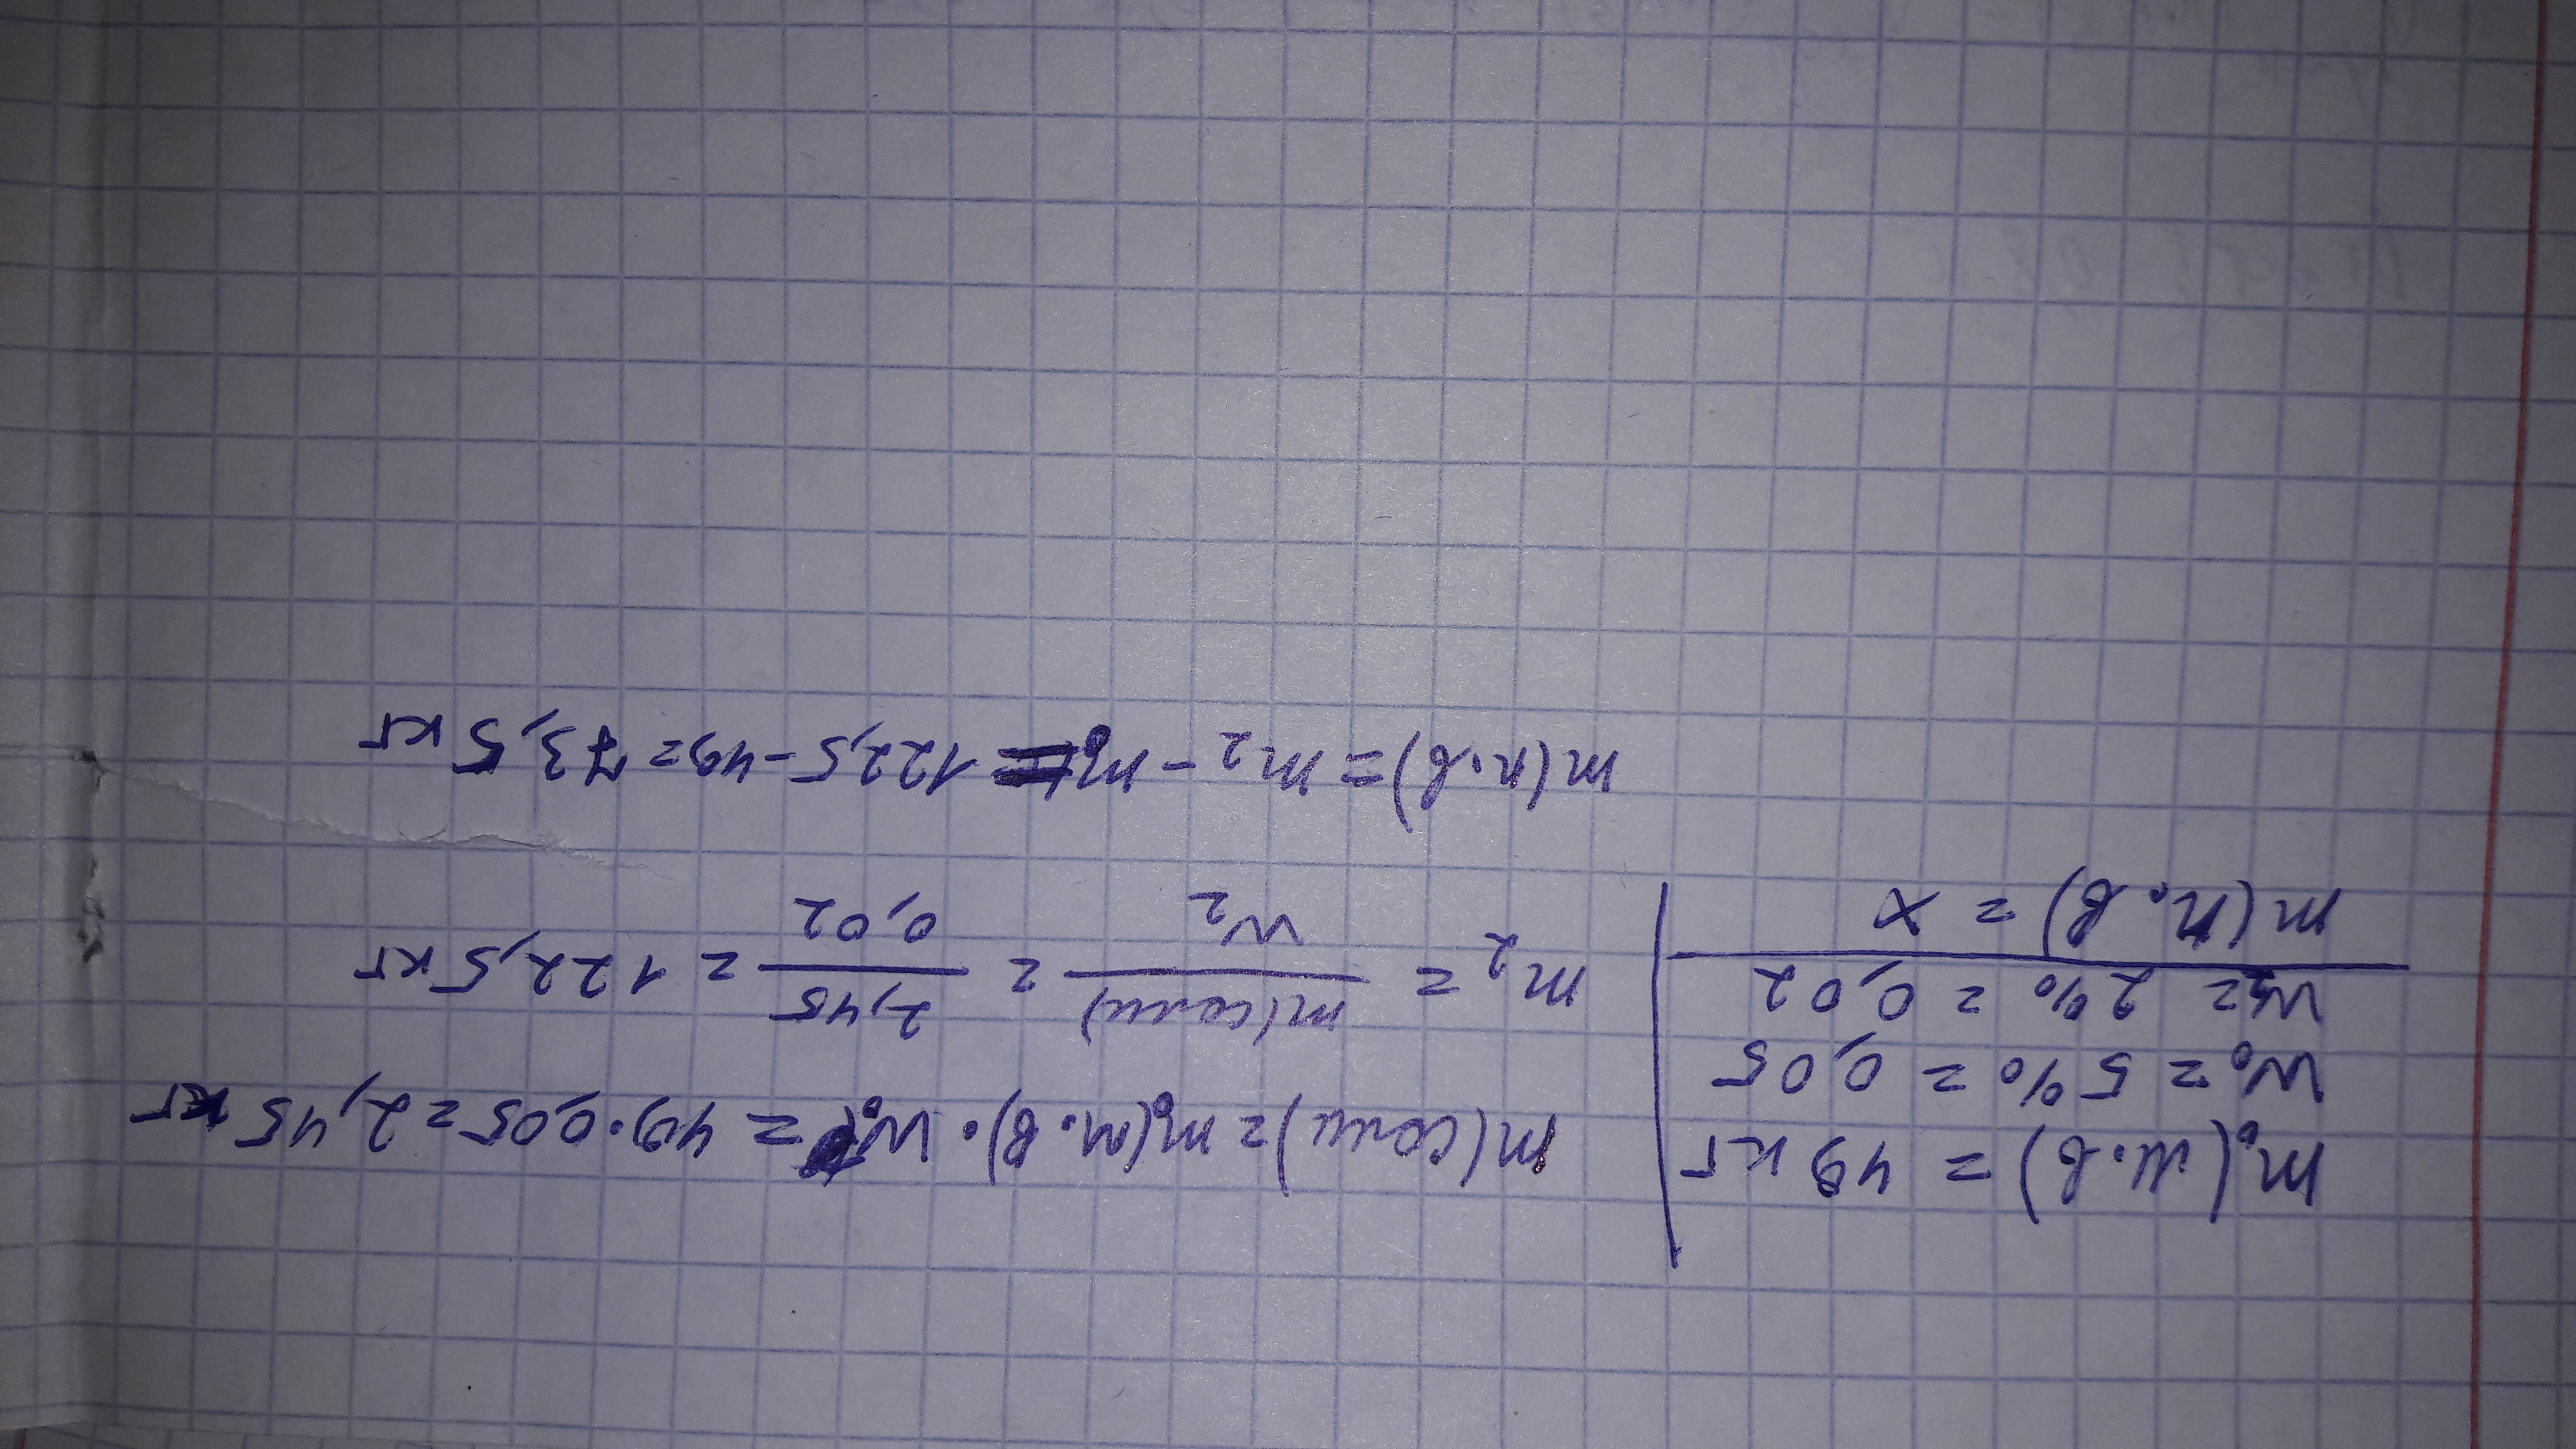 m₀(м.в) = 49 кг
W₀ = 5% = 0,05
W₂ = 2% = 0,02
m(п.в) = x
m(соли) = m₀(м.в) · W₀ = 49 · 0,05 = 2,45 кг
m₂ = m(соли) / W₂ = 2,45 / 0,02 = 122,5 кг
m(п.в) = m₂ - m₀ = 122,5 - 49 = 73,5 кг